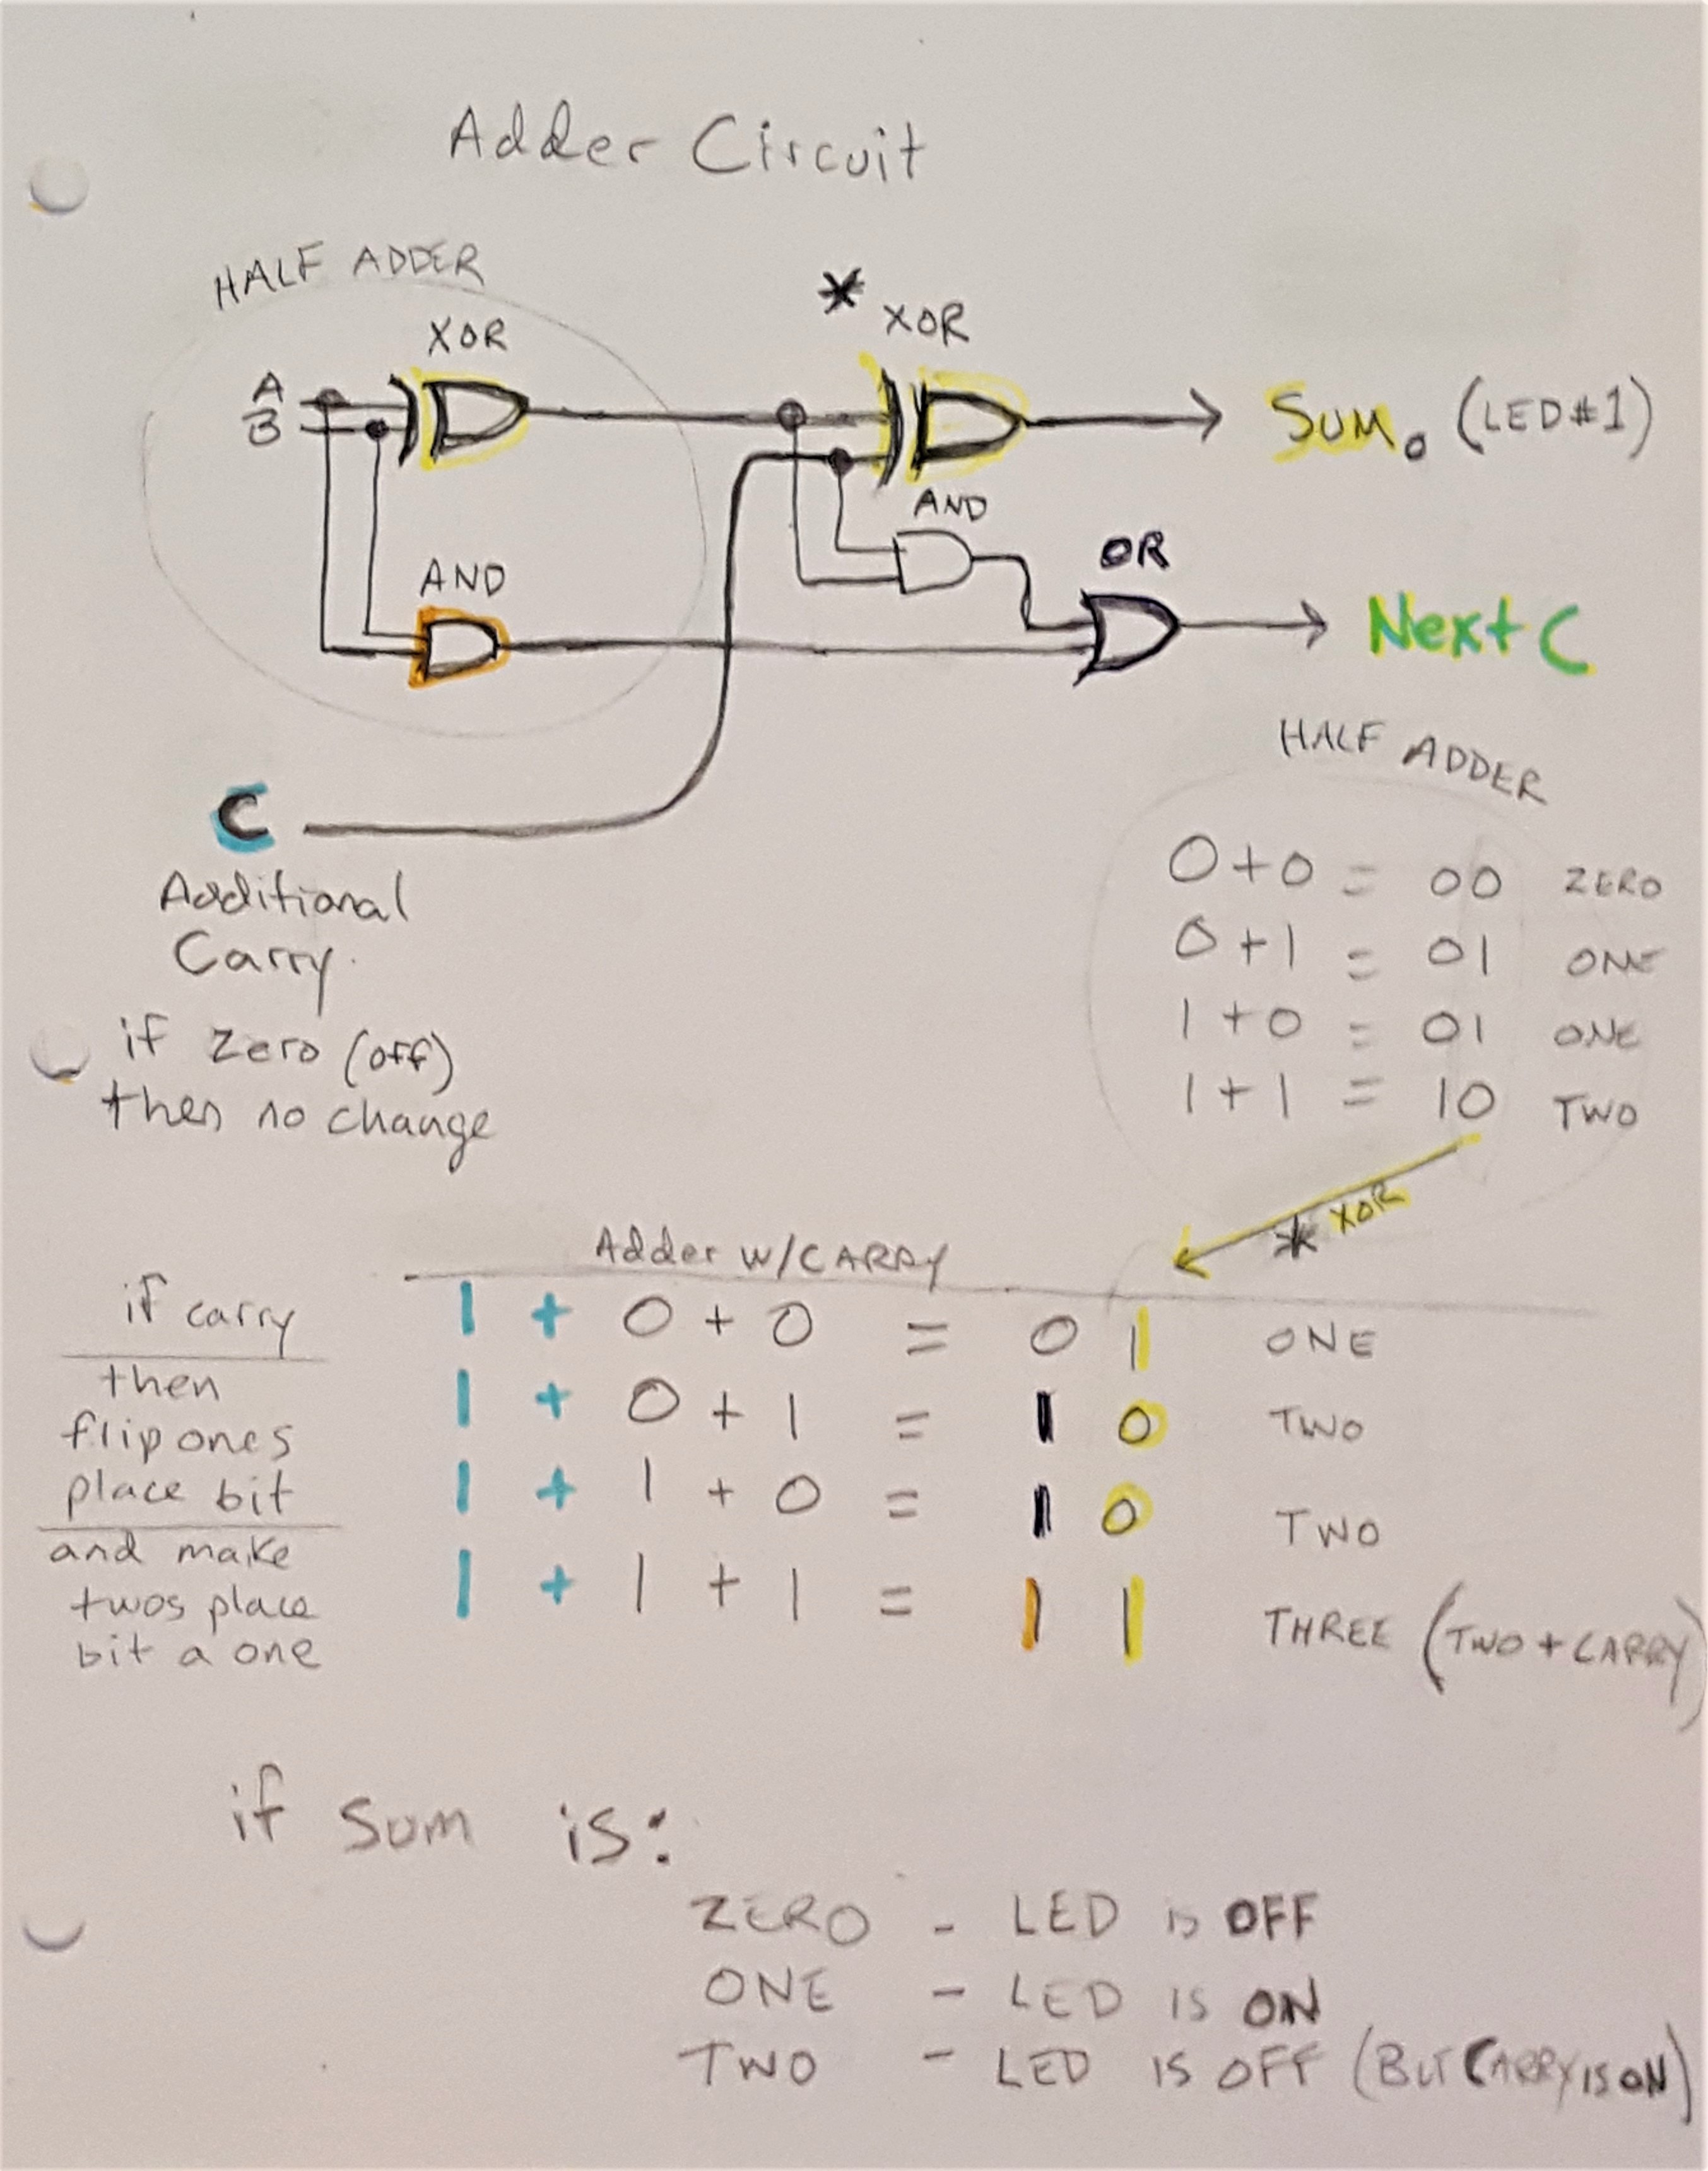 Adder Circuit
HALF ADDER
* XOR
XOR
A
B
Sum₀ (LED#1)
AND
OR
AND
Next C
HALF ADDER
C
Additional
Carry.
0+0 = 00 ZERO
0+1 = 01 ONE
1+0 = 01 ONE
1+1 = 10 TWO
if zero (off)
then no change
* XOR
Adder W/CARRY
if carry
then
flip ones
place bit
and make
twos place
bit a one
1 + 0 + 0 = 0 1 ONE
1 + 0 + 1 = 1 0 TWO
1 + 1 + 0 = 1 0 TWO
1 + 1 + 1 = 1 1 THREE (TWO + CARRY)
if sum is:
ZERO - LED is OFF
ONE - LED IS ON
TWO - LED IS OFF (BUT CARRY IS ON)